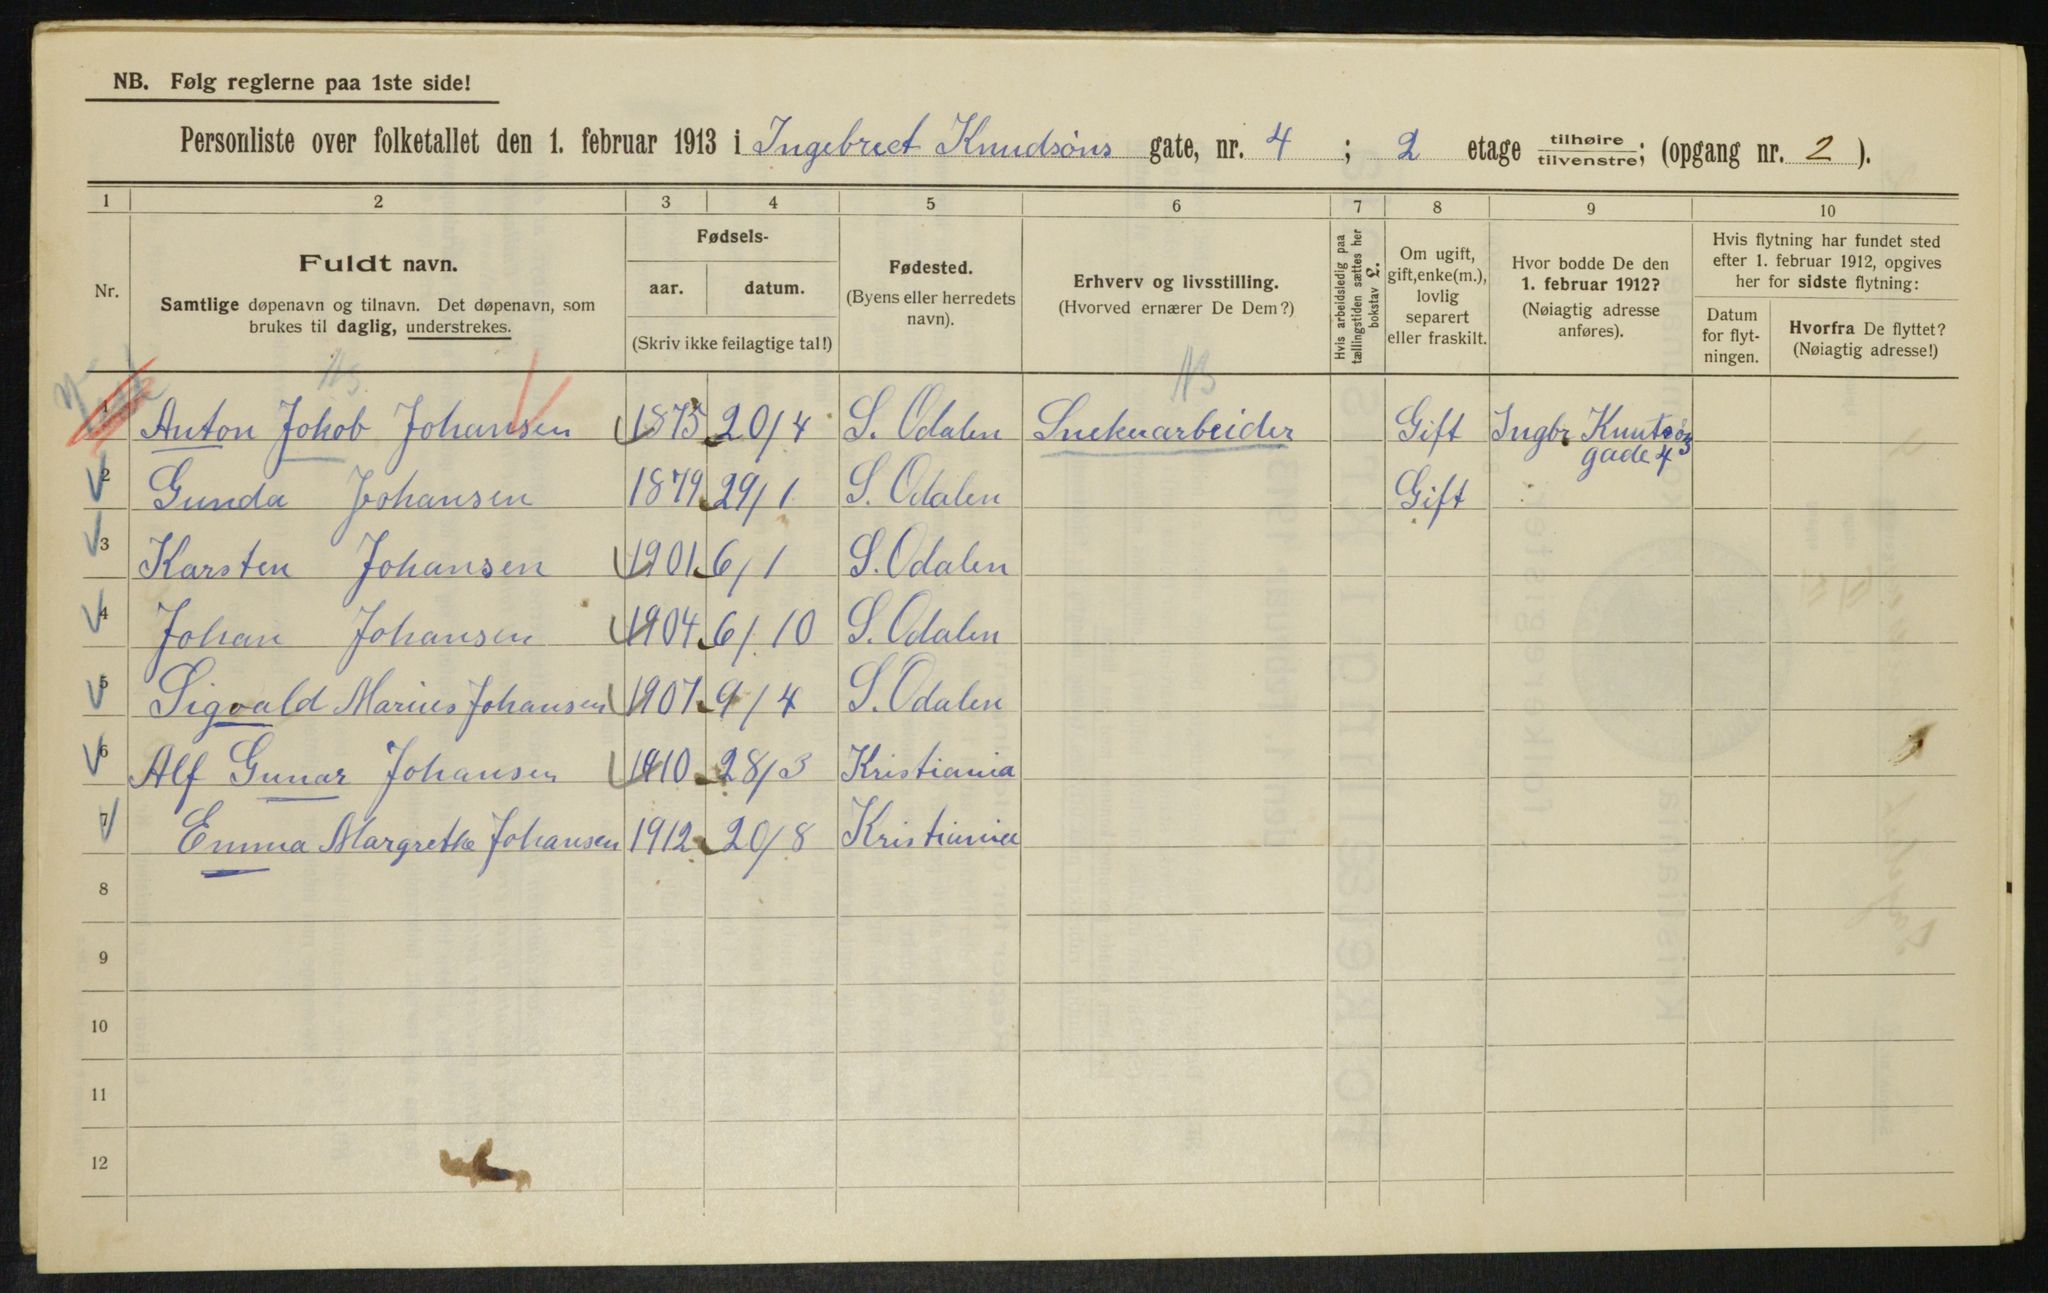 NB. Følg reglerne paa 1ste side!
Personliste over folketallet den 1. februar 1913 i Ingebrect Knudsøns gate, nr. 4 ; 2 etage tilhøire/tilvenstre; (opgang nr. 2 ).
1 2 3 4 5 6 7 8 9 10
Nr.
Fuldt navn.
Samtlige døpenavn og tilnavn. Det døpenavn, som
brukes til daglig, understrekes.
Fødsels-
aar. datum.
(Skriv ikke feilagtige tal!)
Fødested.
(Byens eller herredets
navn).
Erhverv og livsstilling.
(Hvorved ernærer De Dem?)
Hvis arbeidsledig paa
tællingstiden sættes her
bokstav £.
Om ugift,
gift,enke(m.),
lovlig
separert
eller fraskilt.
Hvor bodde De den
1. februar 1912?
(Nøiagtig adresse
anføres).
Hvis flytning har fundet sted
efter 1. februar 1912, opgives
her for sidste flytning:
Datum
for flyt-
ningen.
Hvorfra De flyttet?
(Nøiagtig adresse!)
1 Anton Jokob Johansen 1875 20/4 S. Odalen Snekerarbeider Gift Ingbr Knutsøn
gade 4
2 Gunda Johansen 1879 29/1 S. Odalen Gift
3 Karsten Johansen 1901 6/1 S. Odalen
4 Johan Johansen 1904 6/10 S. Odalen
5 Sigvald Marius Johansen 1907 9/4 S. Odalen
6 Alf Gunar Johansen 1910 28/3 Kristiania
7 Emma Margrethe Johansen 1912 20/8 Kristiania
8
9
10
11
12